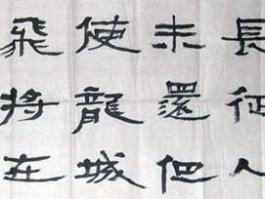 長征人
未還但
使龍城
飛將在